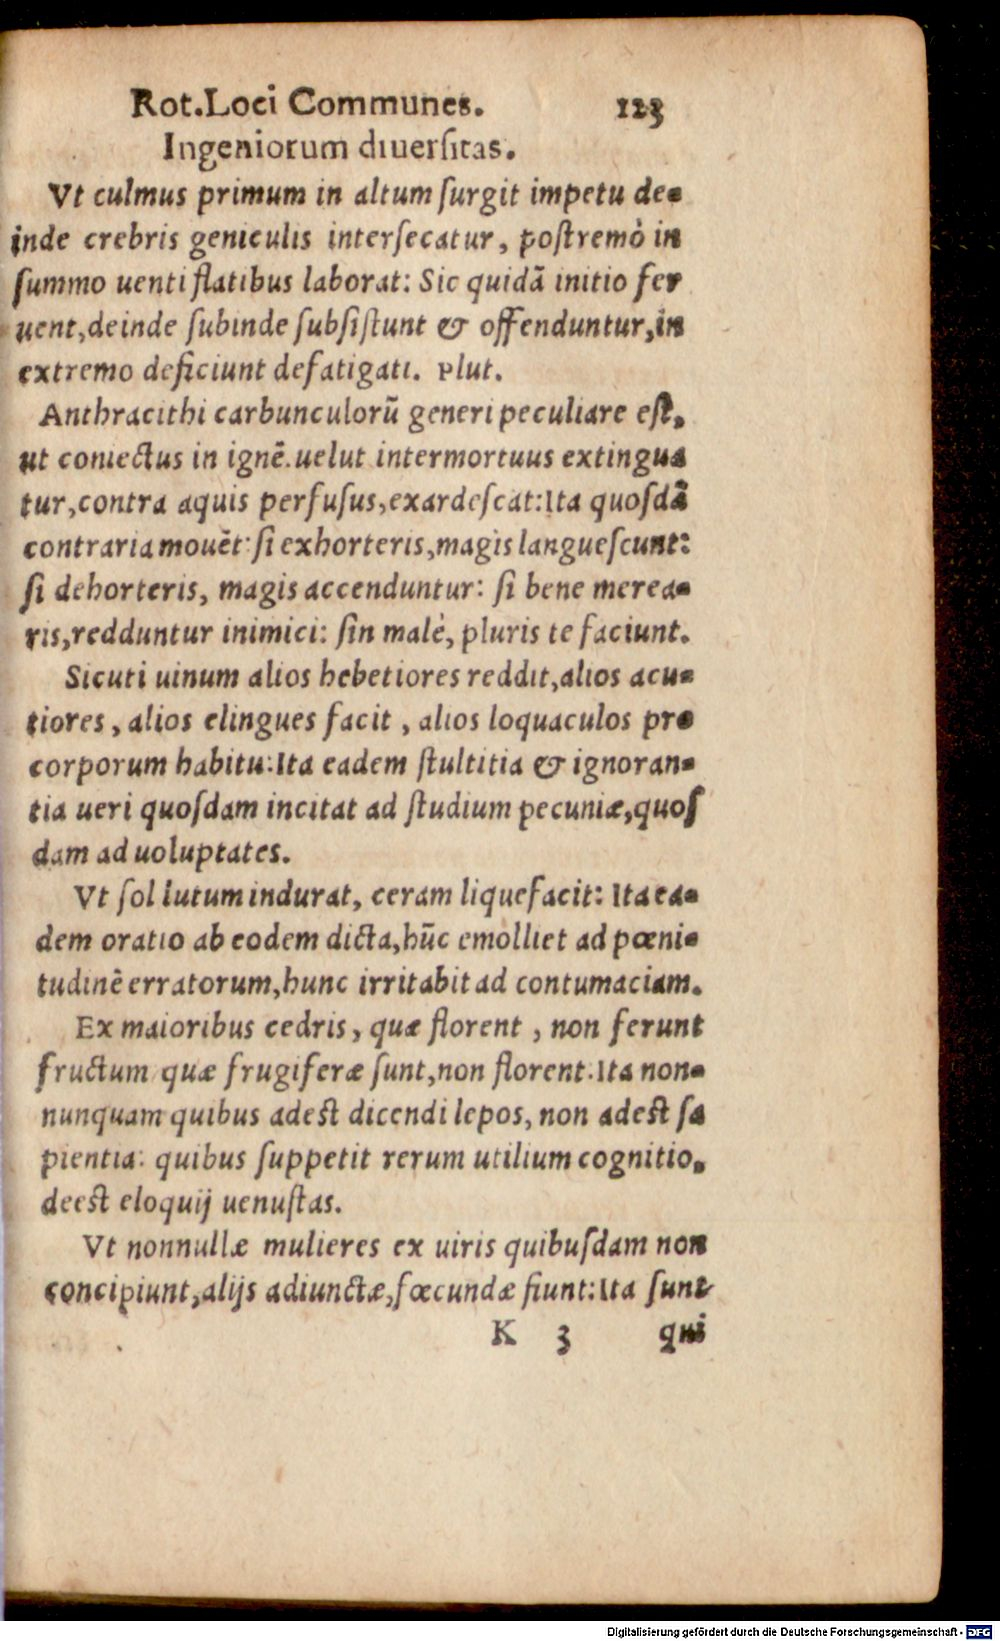 Rot.Loci Communes. 123
Ingeniorum diuerſitas.
Vt culmus primum in altum ſurgit impetu de-
inde crebris geniculis interſecatur, poſtremò in
ſummo uenti flatibus laborat: Sic quidã initio fer
uent,deinde ſubinde ſubſiſtunt & offenduntur,in
extremo deficiunt defatigati. Plut.
Anthracithi carbunculorũ generi peculiare eſt,
ut coniectus in ignẽ.uelut intermortuus extingua
tur,contra aquis perfuſus,exardeſcat:Ita quoſdã
contraria mouẽt: ſi exhorteris,magis langueſcunt:
ſi dehorteris, magis accenduntur: ſi bene merea-
ris,redduntur inimici: ſin malè, pluris te faciunt.
Sicuti uinum alios hebetiores reddit,alios acu-
tiores, alios elingues facit, alios loquaculos pro
corporum habitu:Ita eadem ſtultitia & ignoran-
tia ueri quoſdam incitat ad ſtudium pecuniæ,quoſ
dam ad uoluptates.
Vt ſol lutum indurat, ceram liquefacit: Ita ea-
dem oratio ab eodem dicta,hũc emolliet ad pœni-
tudinẽ erratorum,hunc irritabit ad contumaciam.
Ex maioribus cedris, quæ florent, non ferunt
fructum quæ frugiferæ ſunt,non florent:Ita non-
nunquam quibus adeſt dicendi lepos, non adeſt ſa
pientia: quibus ſuppetit rerum utilium cognitio,
deeſt eloquij uenuſtas.
Vt nonnullæ mulieres ex uiris quibuſdam non
concipiunt,alijs adiunctæ,fœcundæ fiunt:Ita ſunt
K 3 qui
Digitalisierung gefördert durch die Deutsche Forschungsgemeinschaft - DFG